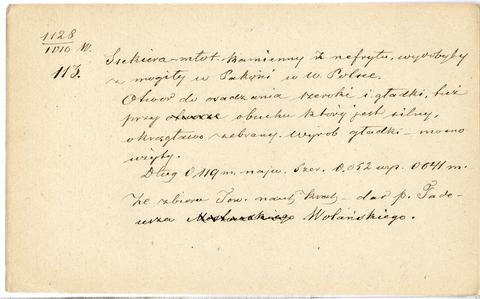 1128
1010 W.
113.
Siekiera-młot kamienny z nefrytu, wydobyty
z mogiły w Pakości w W Polsce.
Otwór do osadzania szeroki i gładki, tuż
przy otworze obuchu który jest silny,
okrągławo zebrany. Wyrób gładki - mocno
użyty.
Dług 0,119 m. najw. szer. 0,052 wys. 0.041 m.
Ze zbioru Tow. nauk. Krak - dar p. Tade-
usza Wolańskiego.